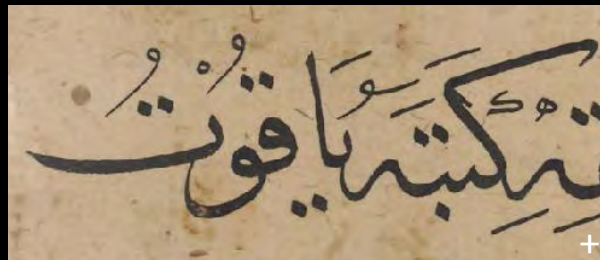 كتبه ياقوت